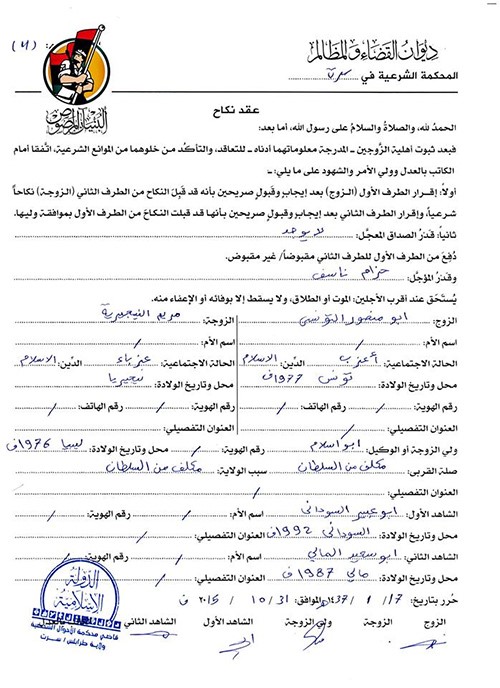 ديوان القضاء والمظالم
المحكمة الشرعية في سرت
(٤)
البنيان المرصوص
عقد نكاح
الحمدُ لله، والصلاةُ والسلامُ على رسول الله، أما بعد:
فبعد ثبوت أهلية الزوجين - المدرجة معلوماتهما أدناه - للتعاقد، والتأكد من خلوهما من الموانع الشرعية، اتَّفقا أمام
الكاتب بالعدل وولي الأمر والشهود على ما يلي:-
أولاً: إقرار الطرف الأول (الزوج) بعد إيجابٍ وقَبولٍ صريحين بأنه قد قَبِلَ النكاح من الطرف الثاني (الزوجة) نكاحاً
شرعياً، وإقرار الطرف الثاني بعد إيجاب وقبول صريحين بأنها قد قبلت النكاحَ من الطرف الأول بموافقة وليها.
ثانياً: قدرُ الصداق المعجَّل: لا يوجد
دُفِعَ من الطرف الأول للطرف الثاني مقبوضاً/ غير مقبوض.
وقدرُ المؤجَّل: حزام ناسف
يُستَحَق عند أقرب الأجلين: الموت أو الطلاق، ولا يسقط إلا بوفائه أو الإعفاء منه.
الزوج: ابو منصور التونسي الزوجة: مريم النيجيرية
اسم الأم: / اسم الأم: /
الحالة الاجتماعية: أعزب الدِّين: الاسلام الحالة الاجتماعية: عزباء الدِّين: الاسلام
محل وتاريخ الولادة: تونس 1977ف محل وتاريخ الولادة: نيجيريا
رقم الهوية: / رقم الهاتف: / رقم الهوية: / رقم الهاتف: /
العنوان التفصيلي: / العنوان التفصيلي: /
ولي الزوجة أو الوكيل: ابو اسلام رقم الهوية: / محل وتاريخ الولادة: ليبيا 1976ف
صلة القربى: مكلف من السلطان سبب الولاية: مكلف من السلطان
العنوان التفصيلي: /
الشاهد الأول: السوداني اسم الأم: / رقم الهوية: /
محل وتاريخ الولادة: السودان 1992ف العنوان التفصيلي: /
الشاهد الثاني: ابو سعيد المالي اسم الأم: / رقم الهوية: /
محل وتاريخ الولادة: مالي 1987ف العنوان التفصيلي: /
حُرر بتاريخ: 17 / 1 / 1437 الموافق: 31 / 10 / 2015 ف
الزوج الزوجة ولي الزوجة الشاهد الأول الشاهد الثاني
الدولة
الإسلامية
قاضي محكمة الأحوال الشخصية
ولاية طرابلس / سرت